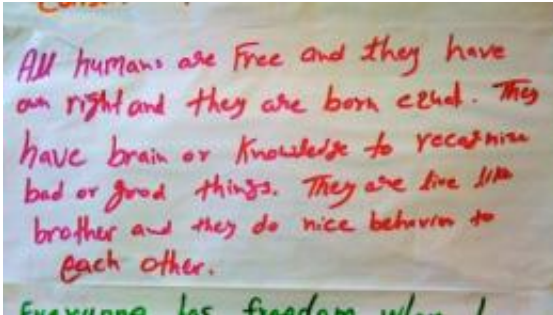 All humans are Free and they have
own right and they are born equal. They
have brain or Knowledge to recagnize
bad or good things. They are live like
brother and they do nice behavior to
each other.
Everyone has freedom when